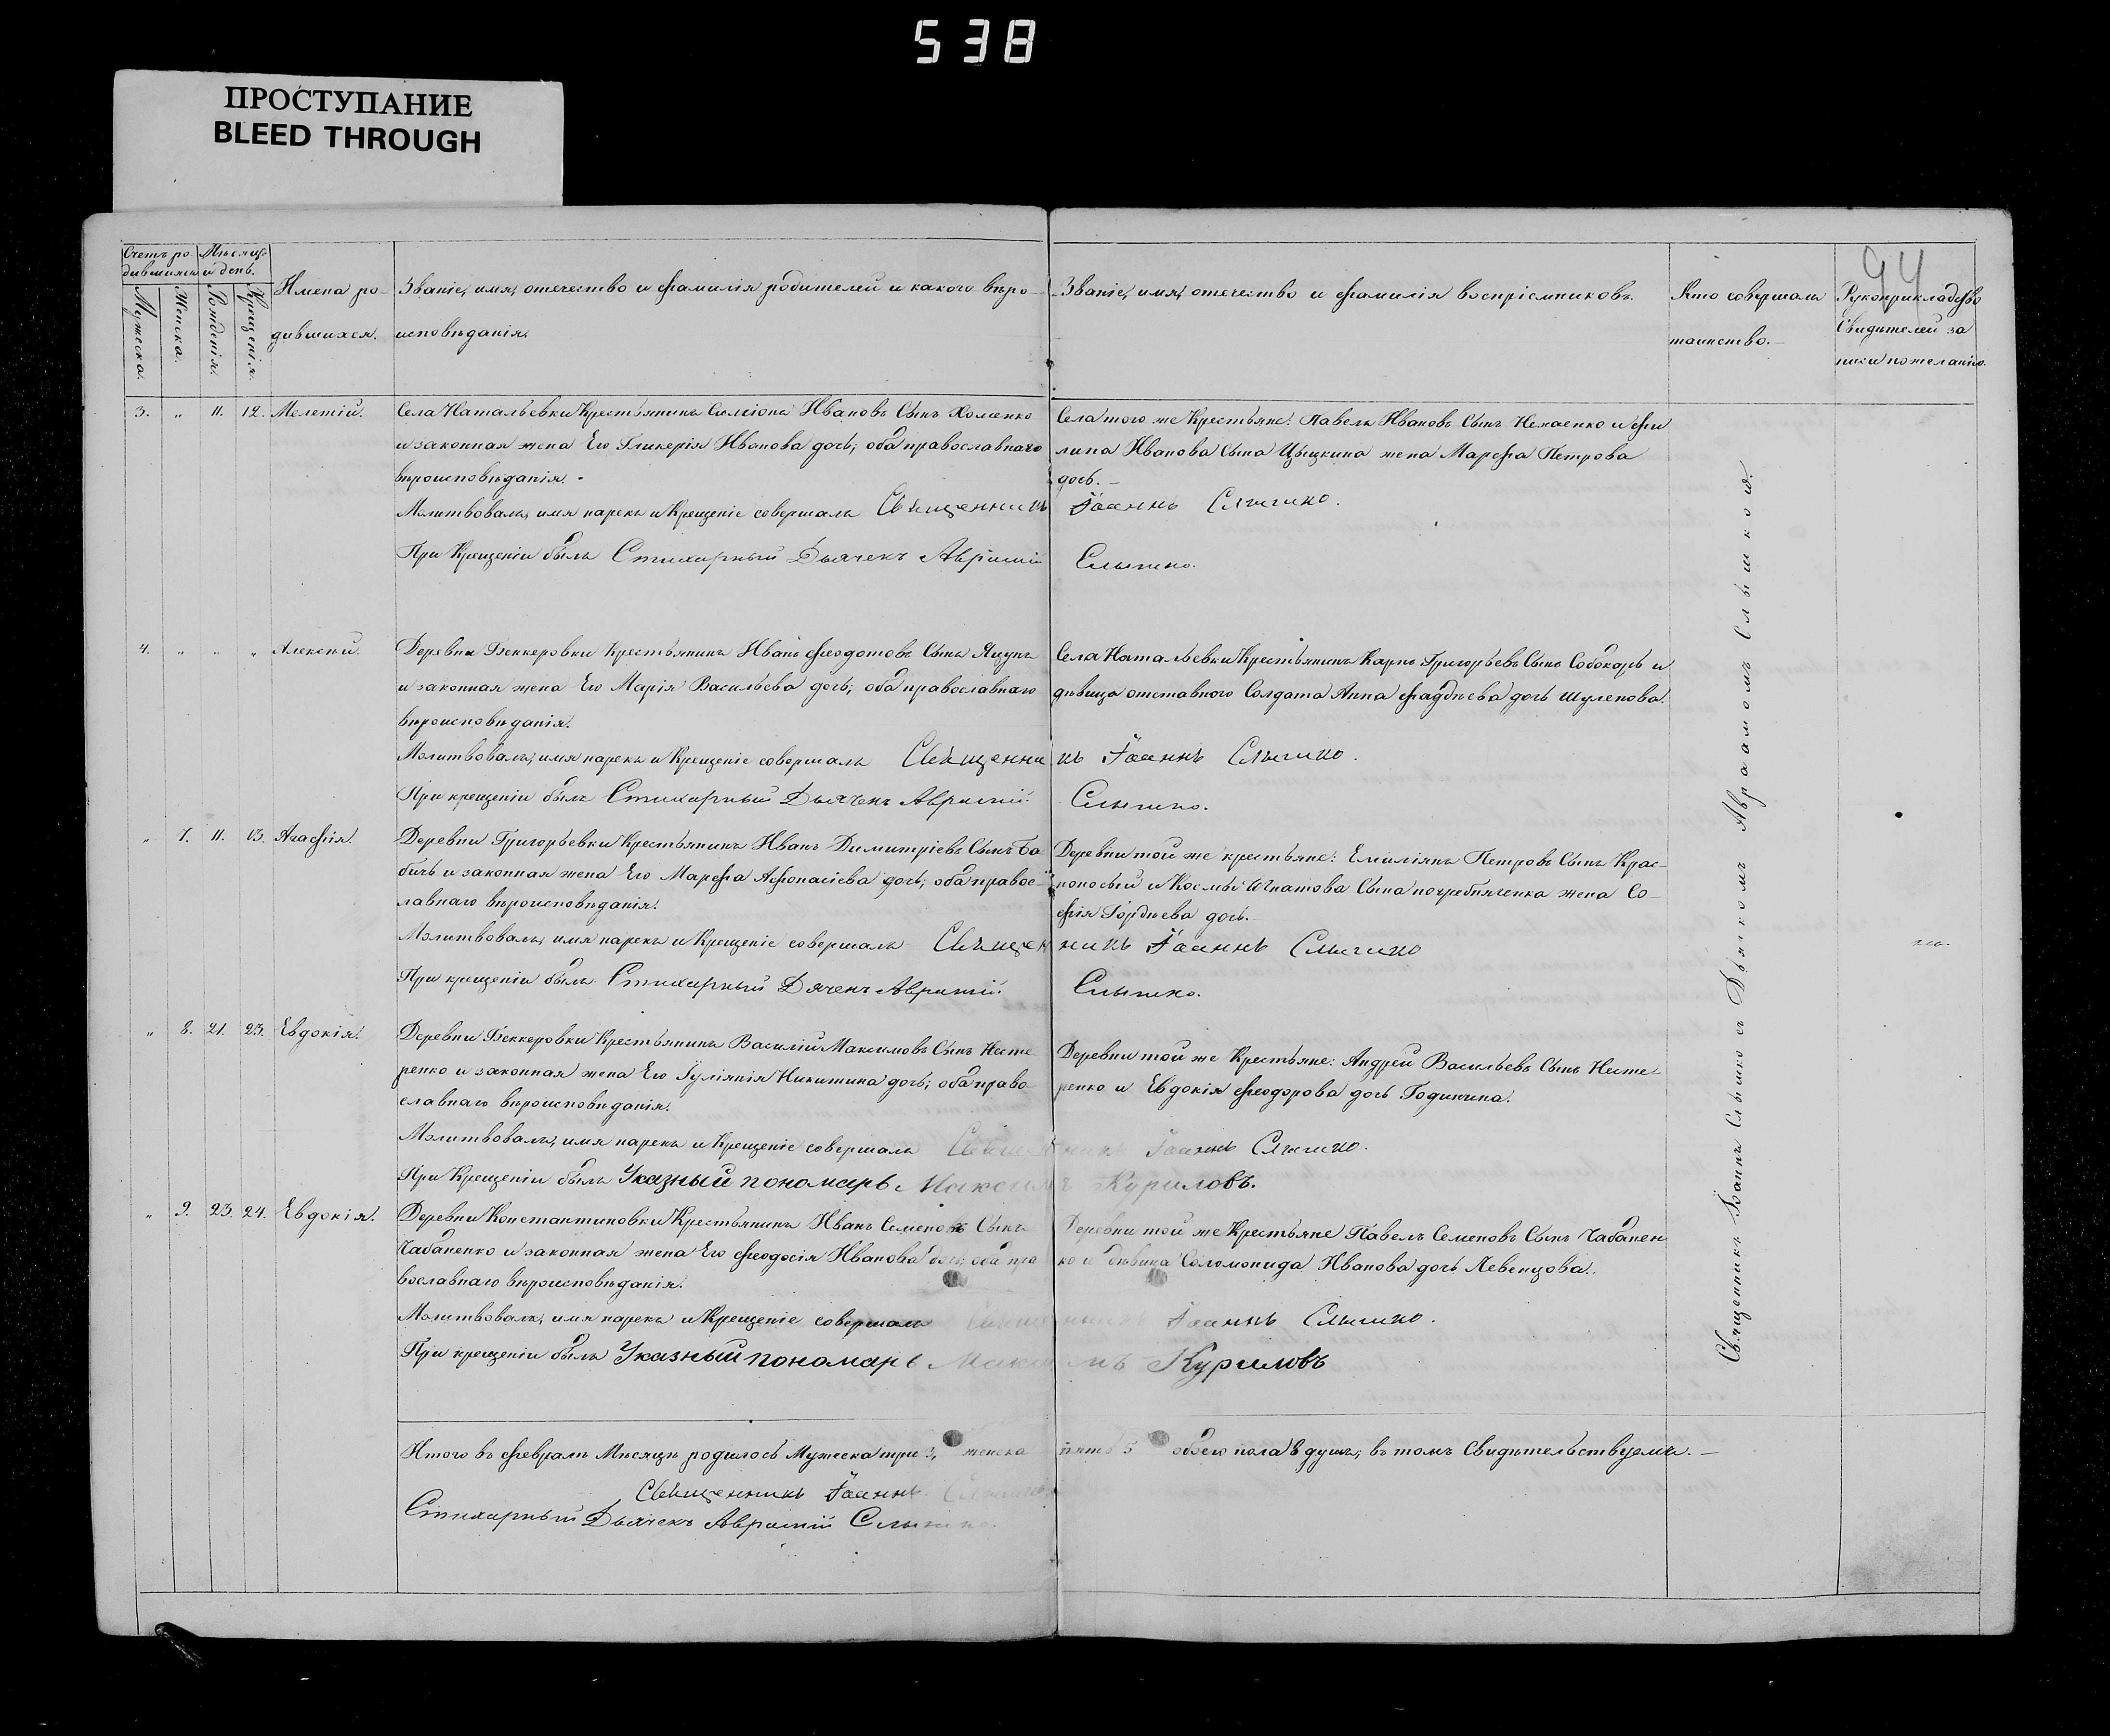 538
ПРОСТУПАНИЕ
BLEED THROUGH
94
Счетъ ро-
дившихся
Мѣсяцъ
и день.
Мужеска.
Женска.
Рожденія.
Крещенія.
Имена ро-
дившихся.
Званіе, имя, отечество и фамилія родителей и какого вѣро-
исповѣданія.
Званіе, имя, отечество и фамилія воспріемниковъ.
Кто совершалъ
таинство.
Рукоприкладство
Свидѣтелей за
писи по желанію.
3. „ 11. 12. Мелетій.
Села Натальевки Крестьянинъ Симеонъ Ивановъ Сынъ Хоменко
и законная жена Его Гликерія Иванова дочь; оба православнаго
вѣроисповѣданія.
Села того же Крестьяне: Павелъ Ивановъ Сынъ и Фи
липа Иванова Сына Цыцкина жена Марфа Петрова
дочь.
Молитвовалъ, имя нарекъ и Крещеніе совершалъ Священникъ Іоаннъ Слышко.
При Крещеніи былъ Стихарный Дьячекъ Аврамій Слышко.
4. „ „ „ Алексѣй.
Деревни Беккеровки Крестьянинъ Иванъ Феодотовъ Сынъ Яцунъ
и законная жена Его Марія Васильева дочь; оба православнаго
вѣроисповѣданія.
Села Натальевки Крестьянинъ Карпъ Григорьевъ Сынъ Собокарь и
дѣвица отставного Солдата Анна Фаддѣева дочь Шулепова.
Молитвовалъ, имя нарекъ и Крещеніе совершалъ Священникъ Іоаннъ Слышко.
При крещеніи былъ Стихарный Дьячекъ Аврамій Слышко.
„ 7. 11. 13. Агафія.
Деревни Григорьевки Крестьянинъ Иванъ Димитріевъ Сынъ Ба
бичъ и законная жена Его Марфа Афонасіева дочь; оба правос-
лавнаго вѣроисповѣданія.
Деревни той же крестьяне: Емиліянъ Петровъ Сынъ Крас-
нопосый и Космы Игнатова Сына Погребняченка жена Со-
фія Гордѣева дочь.
Молитвовалъ, имя нарекъ и Крещеніе совершалъ Священникъ Іоаннъ Слышко
При крещеніи былъ Стихарный Дячекъ Аврамій Слышко.
„ 8. 21. 23. Евдокія.
Деревни Беккеровки Крестьянинъ Василій Максимовъ Сынъ Несте
ренко и законная жена Его Іуліянія Никитина дочь; оба право-
славнаго вѣроисповѣданія.
Деревни той же Крестьяне: Андрей Васильевъ Сынъ Несте-
ренко и Евдокія Феодорова дочь Годинина.
Молитвовалъ, имя нарекъ и Крещеніе совершалъ Священникъ Іоаннъ Слышко.
При Крещеніи былъ Указный пономарь Максимъ Куриловъ.
„ 9. 23. 24. Евдокія.
Деревни Константиновки Крестьянинъ Иванъ Семеновъ Сынъ
Чабаненко и законная жена Его Феодосія Иванова дочь; оба пра
вославнаго вѣроисповѣданія.
Деревни той же Крестьяне Павелъ Семеновъ Сынъ Чабанен
ко и дѣвица Соломонида Иванова дочь Левенцова.
Молитвовалъ, имя нарекъ и Крещеніе совершалъ Священникъ Іоаннъ Слышко.
При крещеніи былъ Указный пономарь Максимъ Куриловъ
Священникъ Іоаннъ Слышко съ Дьячкомъ Авраамомъ Слышкой.
Итого въ Февралѣ Мѣсяцѣ родилось Мужеска три 3, женска пять 5 обоего пола 8 душъ; въ томъ Свидѣтельствуемъ.
Священникъ Іоаннъ Слышко
Стихарный Дьячекъ Аврамій Слышко.